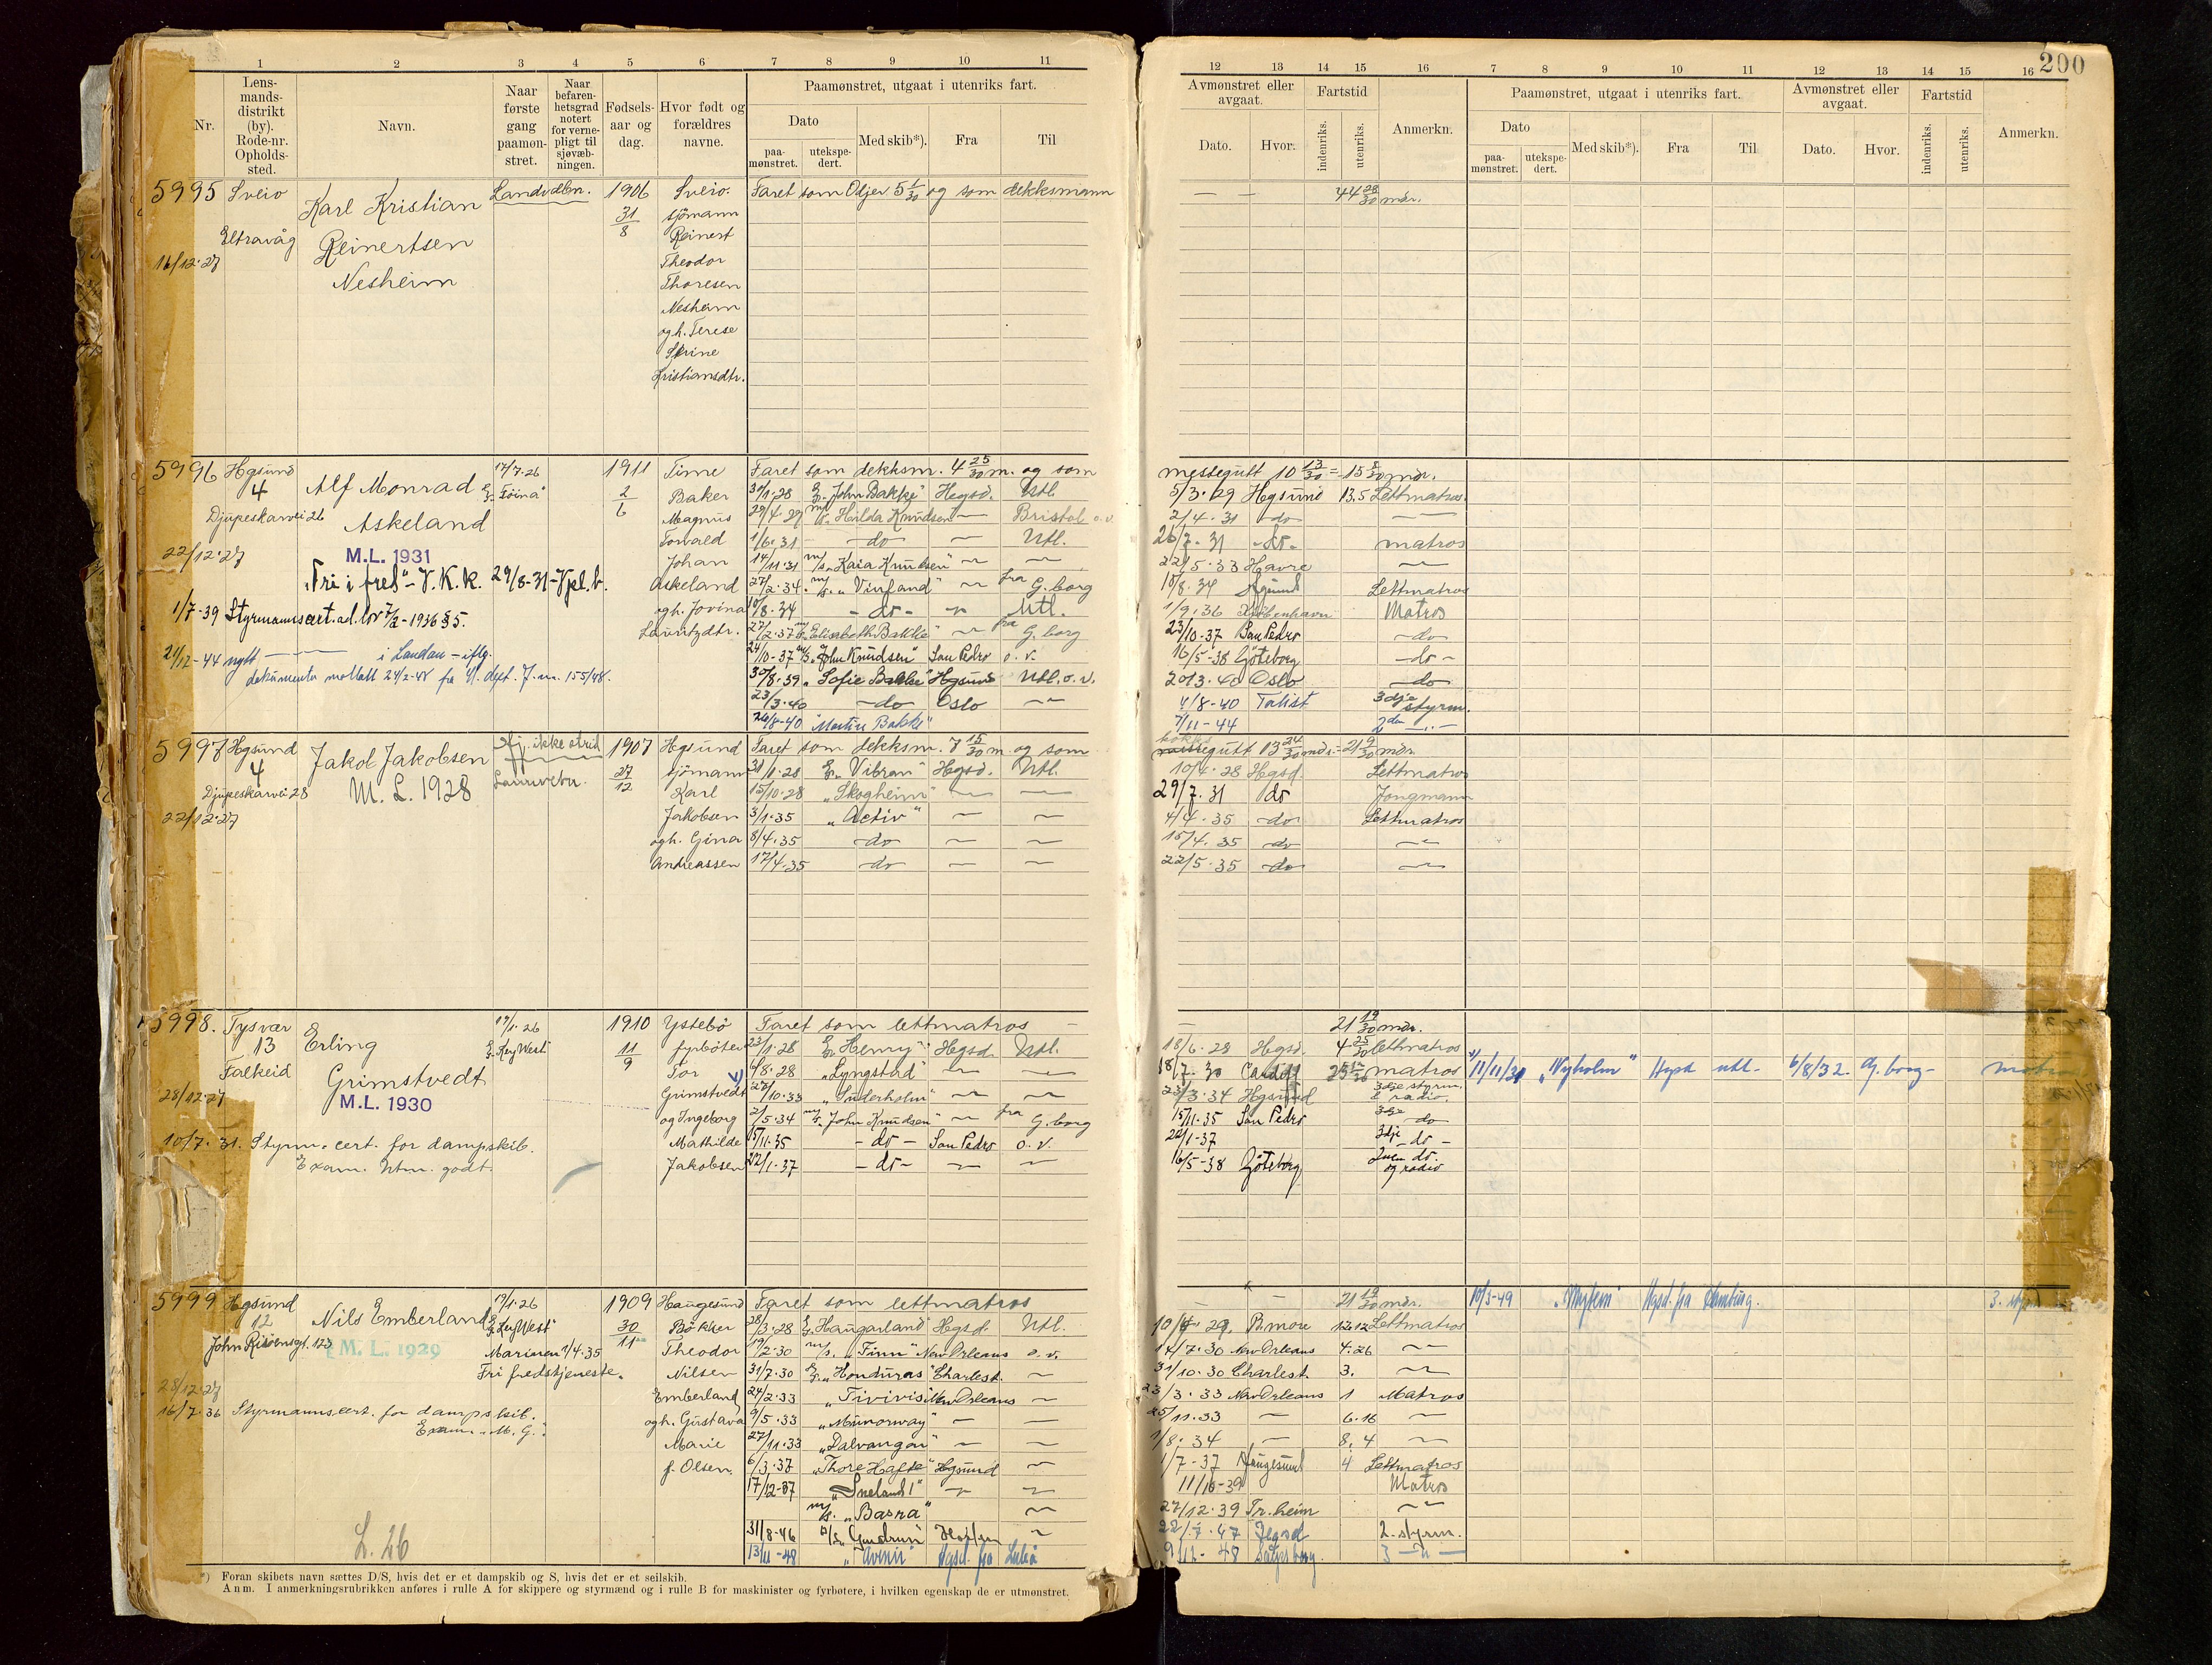 200
1 2 3 4 5 6 7 8 9 10 11
Nr.
Lens-
mands-
distrikt
(by).
Rode-nr.
Opholds-
sted.
Navn.
Naar
første
gang
paamøn-
stret.
Naar
befaren-
hetsgrad
notert
for verne-
pligt til
sjøvæb-
ningen.
Fødsels-
aar og
dag.
Hvor født og
forældres
navne.
Paamønstret, utgaat i utenriks fart.
Dato
paa-
mønstret.
utekspe-
dert.
Med skib*).
Fra
Til
12 13 14 15 16 7 8 9 10 11 12 13 14 15 16
Avmønstret eller
avgaat.
Dato.
Hvor.
Fartstid
indenriks.
utenriks.
Anmerkn.
Paamønstret, utgaat i utenriks fart.
Dato
paa-
mønstret.
utekspe-
dert.
Med skib*).
Fra
Til
Avmønstret eller
avgaat.
Dato.
Hvor.
Fartstid
indenriks.
utenriks.
Anmerkn.
5995 Sveio
Eltravåg
16/12.27
Karl Kristian
Reinertsen
Nesheim
Landvebn.
1906
31/8
Sveio.
sjömann
Reinert
Theodor
Thoresen
Nesheim
og h. Terese
Strine
Kristiansdtr.
Faret som Odjer 5 1/30 og som dekksmann
44 28/30 mdr.
5996 Hgsund
4
Djupeskarvei 26
22/12.27
Alf Monrad
Askeland
M.L. 1931
"Fri i fred" - V.K.k. 29/8-31 - Vpl. b.
1/7-39 Styrmannscert. ad. lov 7/2-1936 § 5.
21/12-44 nytt — i London - iflg.
dokumenter mottatt 24/2-48 fra U. dept. J. nr. 155/48.
17/7.26
1911
2/6
Time
Baker
Magnus
Torvald
Johan
Askeland
og h. Jovina
Lauritzdtr.
Faret som dekksm. 4 25/30 m. og som
30/1.28 "John Bakke" Hegsd. Utl.
29/4.29 m/s. "Hilda Knudsen" — Bristol o.v.
1/6.31 — do — — Utl.
14/11.31 m/s "Kaia Knudsen" — —
27/2.34 m/s. "Vinland" — fra G.borg
10/8.34 - do - — Utl.
27/2.37 m/s "Elisabeth Bakke" — fra G.borg
24/10-37 m/s "John Knudsen" San Pedro o.v.
30/8.39 "Sofie Bakke" Hgsund Utl. o.v.
23/3.40 — do Oslo —
26/8-40 "Martin Bakke"
messegutt 10 13/30 = 15 8/30 mdr.
5/3.29 Hgsund 13.5 Lettmatros
2/4.31 do —
26/7.31 - do - matros
22/5.33 Havre —
10/8.34 Hgsund Lettmatros
1/9.36 Kjöbenhavn Matros
23/10-37 San Pedro — do
16/5-38 Göteborg — do -
20/3.40 Oslo — do
4/8-40 3dje styrm.
7/11-44 2den —
5997 Hgsund
4
Djupeskarvei 28
22/12.27
Jakob Jakobsen
M. L. 1928
ikke strid
Landvebn.
1907
27/12
Hegsund
sjömann
Karl
Jakobsen
og h. Gina
Andreassen
Faret som dekksm. 7 15/30 m. og som
31/1.28 "Vibran" Hegsd. Utl.
15/10.28 "Skogheim" — —
3/1.35 "Activ" — —
8/4.35 — do — —
17/4.35 — do — —
kokksgutt 13 24/30 mdr. = 21 9/30 mdr.
10/4.28 Hegsd. Lettmatros
29/7.31 do Jongmann
4/4.35 — do Lettmatros
15/4.35 do —
22/5.35 — do —
5998. Tysvær
13
Falkeid
28/12.27
Erling
Grimstvedt
M.L. 1930
10/7.31. Styrm. cert. for dampskib.
Exam. Utm. godt.
19/1.26
"Key West"
1910
11/9
Ystebö
fyrböter
Tor
Grimstvedt
og Ingeborg
Mathilde
Jakobsen
Faret som lettmatros
23/1.28 "Henry" Hegsd. Utl.
6/8.28 "Lyngstad" — —
27/10.33 "Suderholm" — —
2/5.34 m/s. "John Knudsen" — fra G.borg
15/11.35 - do - San Pedro o.v.
22/1.37 - do - — —
21 19/30 mdr.
18/6.28 Hegsd. 4 25/30 lettmatros
18/7.30 Cardiff matros
Hgsund 3dje styrm. & radio.
15/11.35 San Pedro 3dje do
22/1-37 3dje - do -
16/5-38 Göteborg 2nen do. og radio
11/11/30 "Nyholm" Hgsd utl. 6/8/32. G.borg - matros
5999 Hgsund
12
John Risöensgt. 123
28/12.27
Nils Emberland
M. L. 1929
16/7.36 Styrmannscert. for dampskib.
Exam. M. G.
19/1.26
"Key West"
Marinen 1/4.35
Fri fredstjeneste.
1909
30/11
Haugesund
Bökker
Theodor
Nilsen
Emberland
og h. Gustava
Marie
f. Olsen.
Faret som lettmatros
28/3.28 "Haugarland" Hegsd. Utl.
19/2.30 m/s. "Finn" New Orleans o.v.
31/7.30 "Honduras" Charlest. —
24/2.33 "Tivives" New Orleans —
9/5.33 "Munorway" — —
27/11.33 "Dalvangen" — —
6/3.37 "Thore Hafte" Hgsund —
17/12-37 "Sneland I" — —
m/s. "Basra" —
31/8-46 "Gudrun" —
13/11-48 "Avenir" Hgsd. fra Luleå
21 19/30 mdr.
B.more 12.12 Lettmatros
14/7.30 New Orleans 4.26 —
31/10.30 Charlest. 3. —
23/3.33 New Orleans 1 Matros
25/11.33 — 6.16 —
1/8.34 — 8.4 —
1/7-37 Haugesund 4 Lettmatros
11/10-39 Matros
27/12.39 Tr.heim —
22/7.47 Hegsd 2. styrm.
9/12-48 Sarpsborg 3 — " —
10/3-49 Hgsd. fra Hamburg. 3. styrm
L. 26
*) Foran skibets navn sættes D/S, hvis det er et dampskib og S, hvis det er et seilskib.
Anm. I anmerkningsrubrikken anføres i rulle A for skippere og styrmænd og i rulle B for maskinister og fyrbøtere, i hvilken egenskap de er utmønstret.